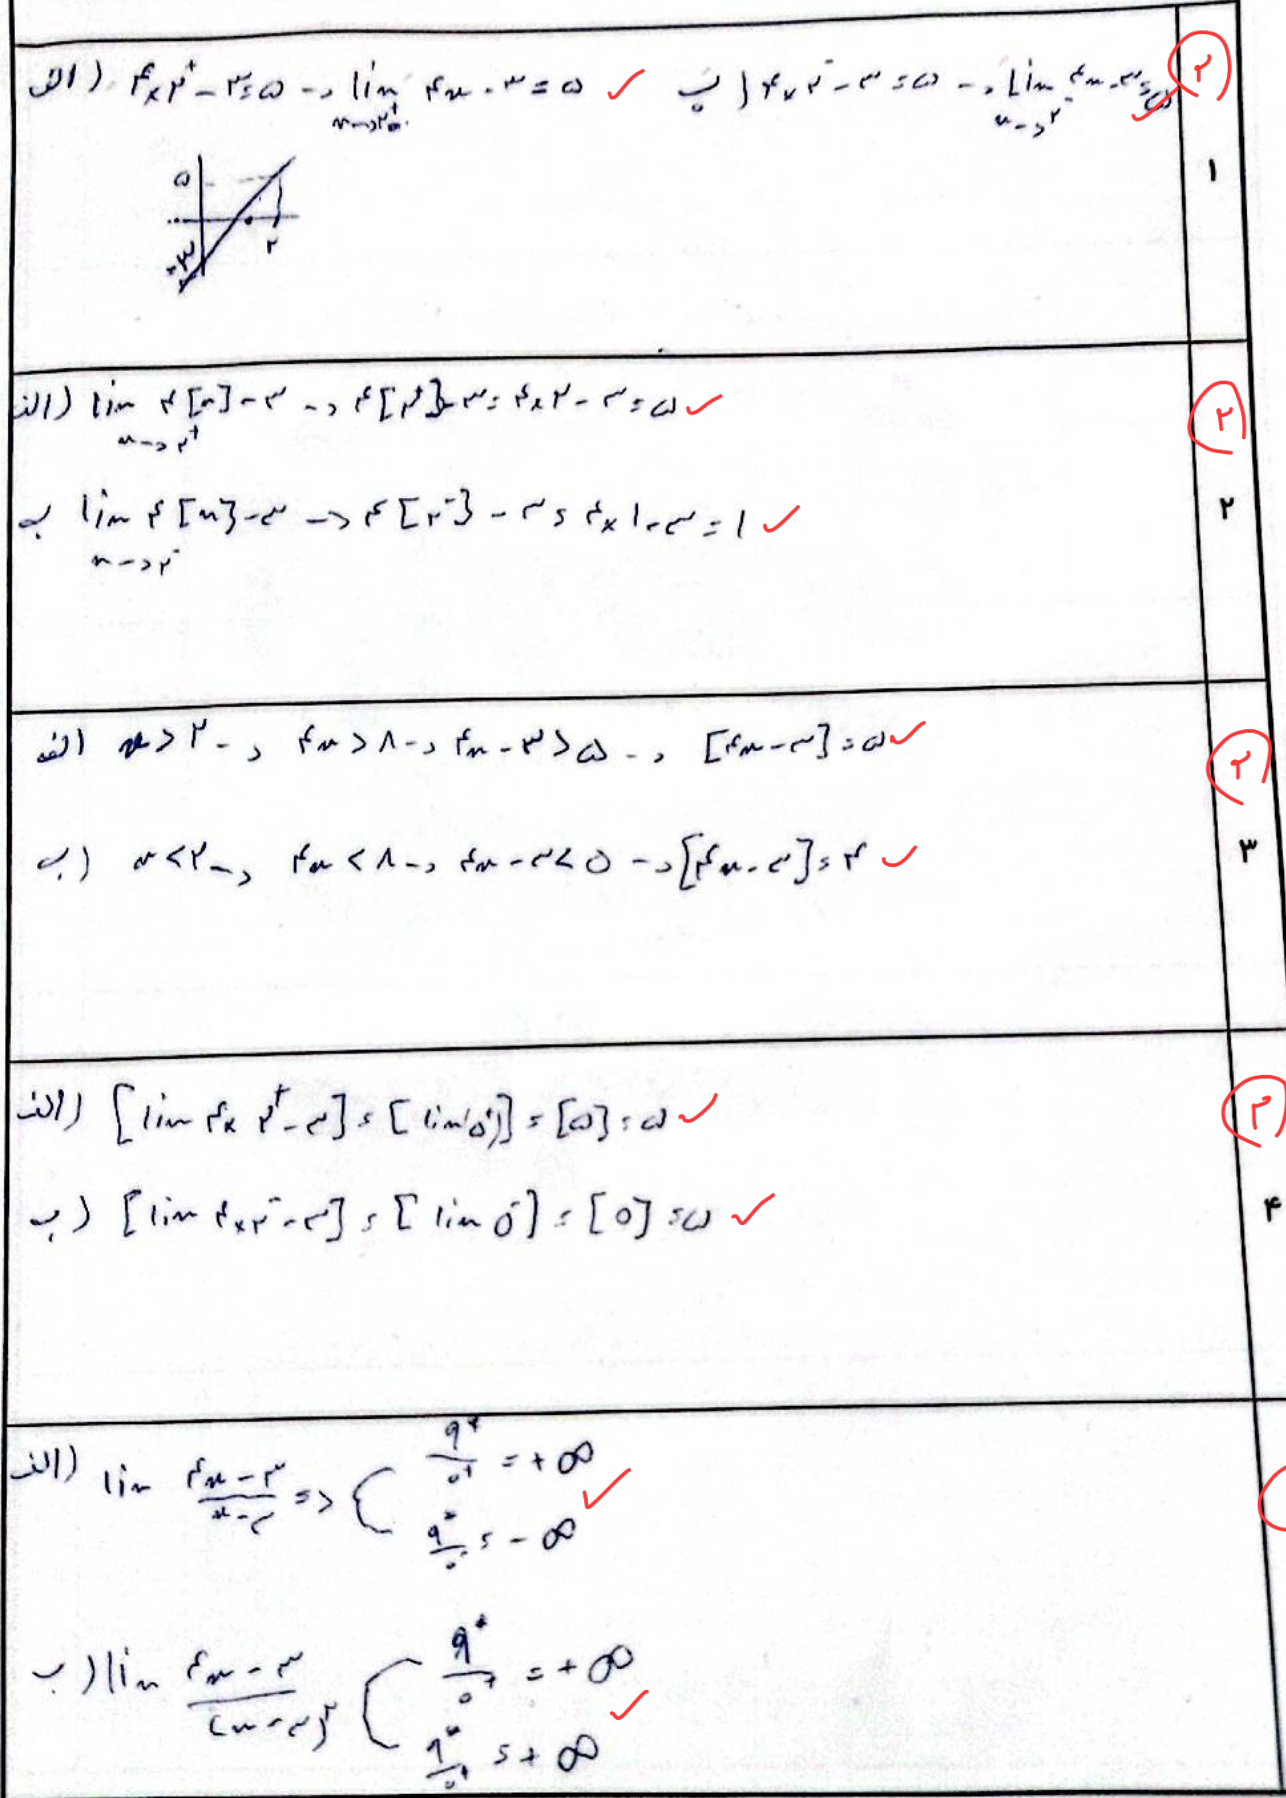 الف) ۴×۲⁺ - ۳ = ۵ -> lim x->۲⁺ ۴x - ۳ = ۵ ✓ ب) ۴×۲⁻ - ۳ = ۵ -> lim x->۲⁻ ۴x - ۳ = ۵ ✓
۲
۱
۵
۲
-۳
الف) lim x->۲⁺ ۴[x] - ۳ -> ۴[۲⁺] - ۳ = ۴×۲ - ۳ = ۵ ✓
۲
ب lim x->۲⁻ ۴[x] - ۳ -> ۴[۲⁻] - ۳ = ۴×۱ - ۳ = ۱ ✓
۲
الف) x > ۲ -> ۴x > ۸ -> ۴x - ۳ > ۵ -> [۴x - ۳] = ۵ ✓
۲
ب) x < ۲ -> ۴x < ۸ -> ۴x - ۳ < ۵ -> [۴x - ۳] = ۴ ✓
۳
الف) [lim ۴×۲⁺ - ۳] = [lim(۵⁺)] = [۵] = ۵ ✓
۲
ب) [lim ۴×۲⁻ - ۳] = [lim ۵⁻] = [۵] = ۵ ✓
۴
الف) lim (۴x - ۳)/(x - ۳) => { ۹⁺/۰⁺ = +∞
۹⁻/۰⁻ = -∞ ✓
ب) lim (۴x - ۳)/(x - ۳)² { ۹⁺/۰⁺ = +∞
۹⁻/۰⁺ = +∞ ✓